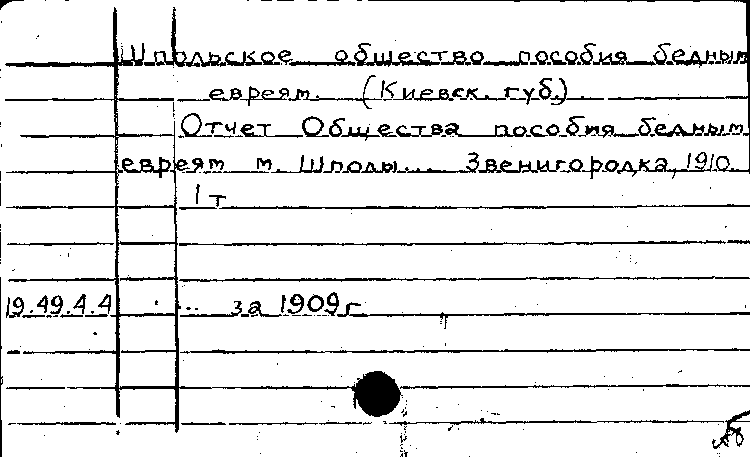 Шпольское общество пособия бедным
евреям. (Киевск. губ.).
Отчет Общества пособия бедным
евреям м. Шполы... Звенигородка, 1910.
1 т
19.49.4.4 ... за 1909 г